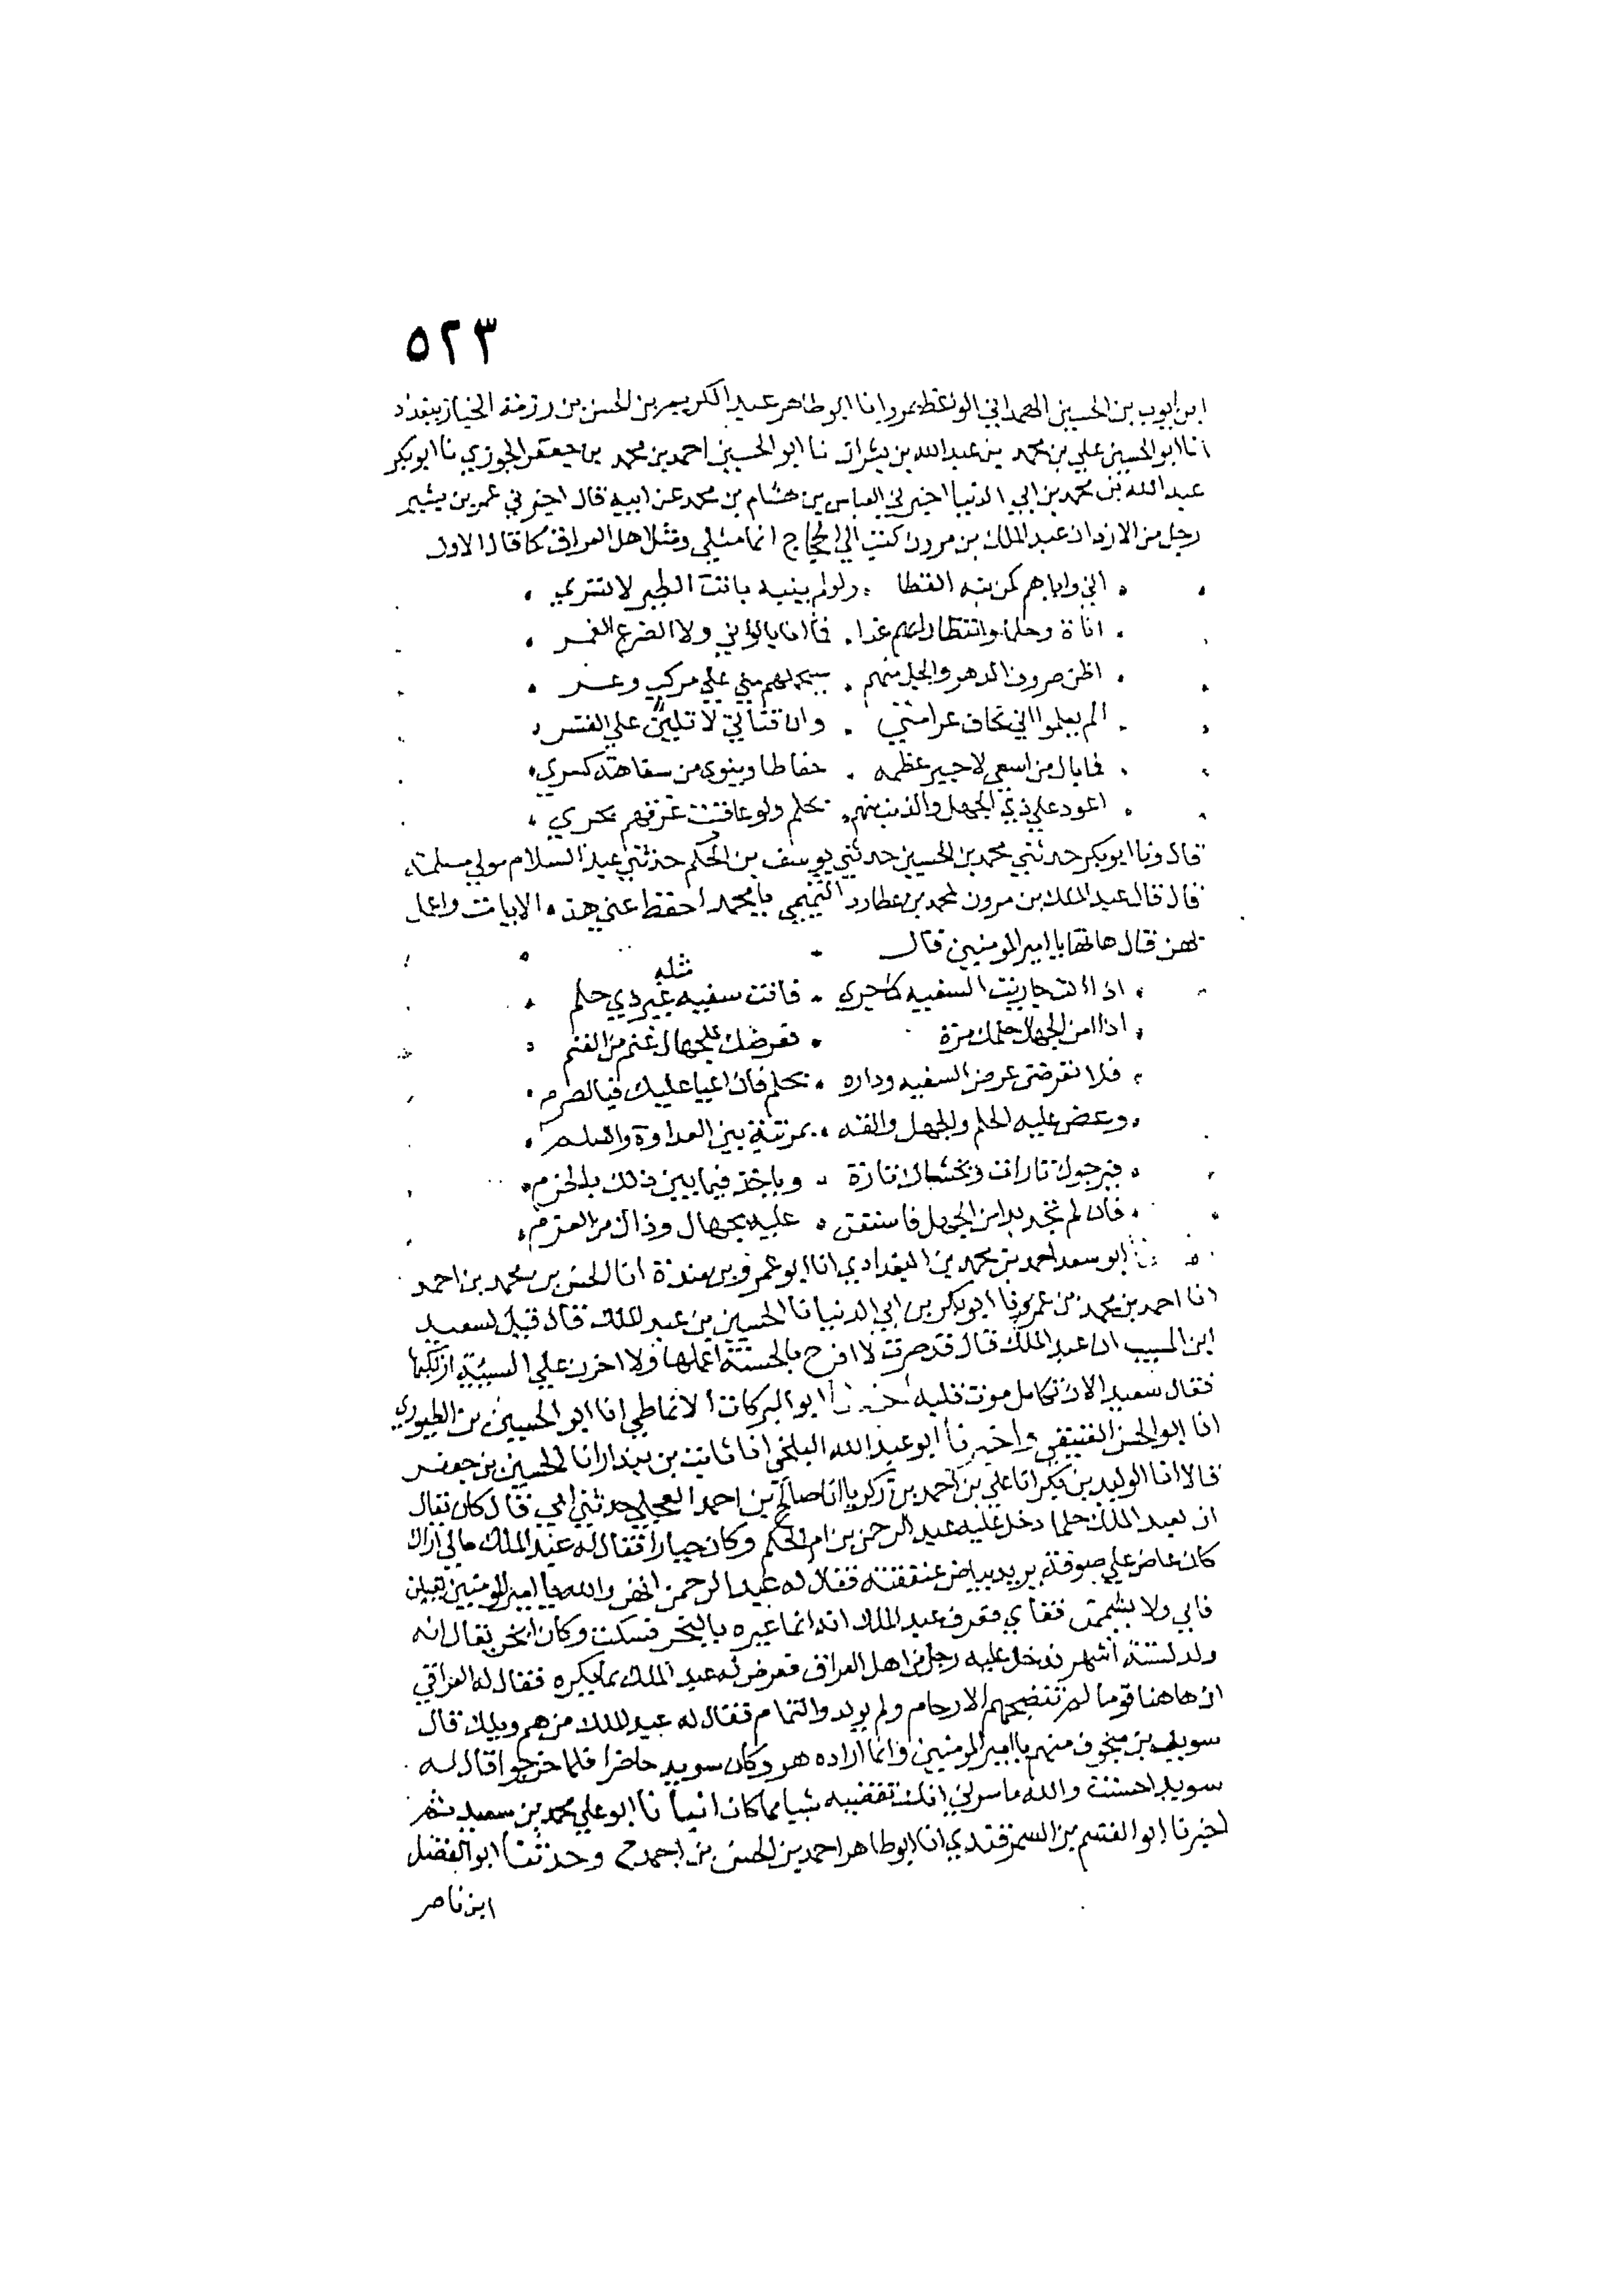 ٥٢٣
ابن ايوب بن الحسين الهمداني الواعظ بمرو انا ابو طاهر عبد الكريم بن الحسن بن رزمة الخباز ببغداد
انا ابو الحسين علي بن محمد بن عبد الله بن بشران نا ابو الحسين احمد بن محمد بن جعفر الجوزي نا ابو بكر
عبد الله بن محمد بن ابي الدنيا اخبرني العباس بن هشام بن محمد عن ابيه قال اخبرني عمر بن بشير
رجل من الازد ان عبد الملك بن مرون كتب الي الحجاج انما مثلي ومثل اهل العراق كما قال الاول
اني واياهم كمن نبه القطا ولو لم ينبه باتت الطير لا تسري
اناة وحلما وانتظارا بهم غدا فما انا بالواني ولا الضرع الغمر
اظن صروف الدهر والجهل منهم سيحملهم مني علي مركب وعر
الم يعلموا اني تخاف عرامتي وان قناتي لا تلين علي القسر
فما بال من اسعي لاجبر عظمه حفاظا وينوي من سفاهته كسري
اعود علي ذي الجهل والذنب منهم بحلم ولو عاقبت غرقهم بحري
قال ونا ابو بكر حدثني محمد بن الحسين حدثني يوسف بن الحكم حدثني عبد السلام مولي مسلمة
قال قال عبد الملك بن مرون لمحمد بن عطارد التميمي يا محمد احفظ عني هذه الابيات واعمل
بهن قال هاتها يا امير المومنين قال
اذا انت جاريت السفيه كما جري فانت سفيه مثله غير ذي حلم
اذا امن الجهال حلمك مرة فعرضك للجهال غنم من الغنم
فلا تعرض عرض السفيه وداره بحلم فان اعيا عليك فبالصرم
وعض عليه الحلم والجهل والقه بمرتبة بين العداوة والسلم
فيرجوك تارات ويخشاك تارة وياخذ فيما بين ذلك بالحزم
فان لم تجد بدا من الجهل فاستعن عليه بجهال وذاك من العزم
ابو سعد احمد بن محمد بن البغدادي انا ابو عمرو بن مندة انا الحسن بن محمد بن احمد
انا احمد بن محمد بن عمر نا ابو بكر بن ابي الدنيا نا الحسين بن عبد الملك قال قيل لسعيد
ابن المسيب ان عبد الملك قال قد صرت لا افرح بالحسنة اعملها ولا احزن علي السيئة ارتكبها
فقال سعيد الان تكامل موت قلبه ابو البركات الانماطي انا ابو الحسين بن الطيوري
انا ابو الحسن العتيقي واخبرنا ابو عبد الله البلخي انا ثابت بن بندار انا الحسين بن جعفر
قالا انا الوليد بن بكر انا علي بن احمد بن زكريا انا صالح بن احمد العجلي حدثني ابي قال كان يقال
ان لعبد الملك حلما دخل عليه عبد الرحمن بن ام الحكم وكان جبارا فقال له عبد الملك مالي اراك
كان عاض علي صوفة يريد بياض عنفقته فقال له عبد الرحمن والله يا امير المومنين يقبلن
في ولا يشممن قفاي فعرف عبد الملك انه انما عيره بالبخر فسكت وكان ابخر يقال انه
ولد لستة اشهر فدخل عليه رجل من اهل العراق فعرض له عبد الملك بما يكره فقال له العراقي
ان هاهنا قوما لم تنضجهم الارحام ولم يولدوا لتمام فقال له عبد الملك من هم ويلك قال
سويد بن منجوف منهم يا امير المومنين وانما اراده هو وكان سويد حاضرا فلما خرجوا قال له
سويد احسنت والله ما سرني انك شيا مما كان انبانا ابو علي محمد بن سعيد ثم
اخبرنا ابو القسم بن السمرقندي انا ابو طاهر احمد بن الحسن بن احمد ح وحدثنا ابو الفضل
ابن ناصر